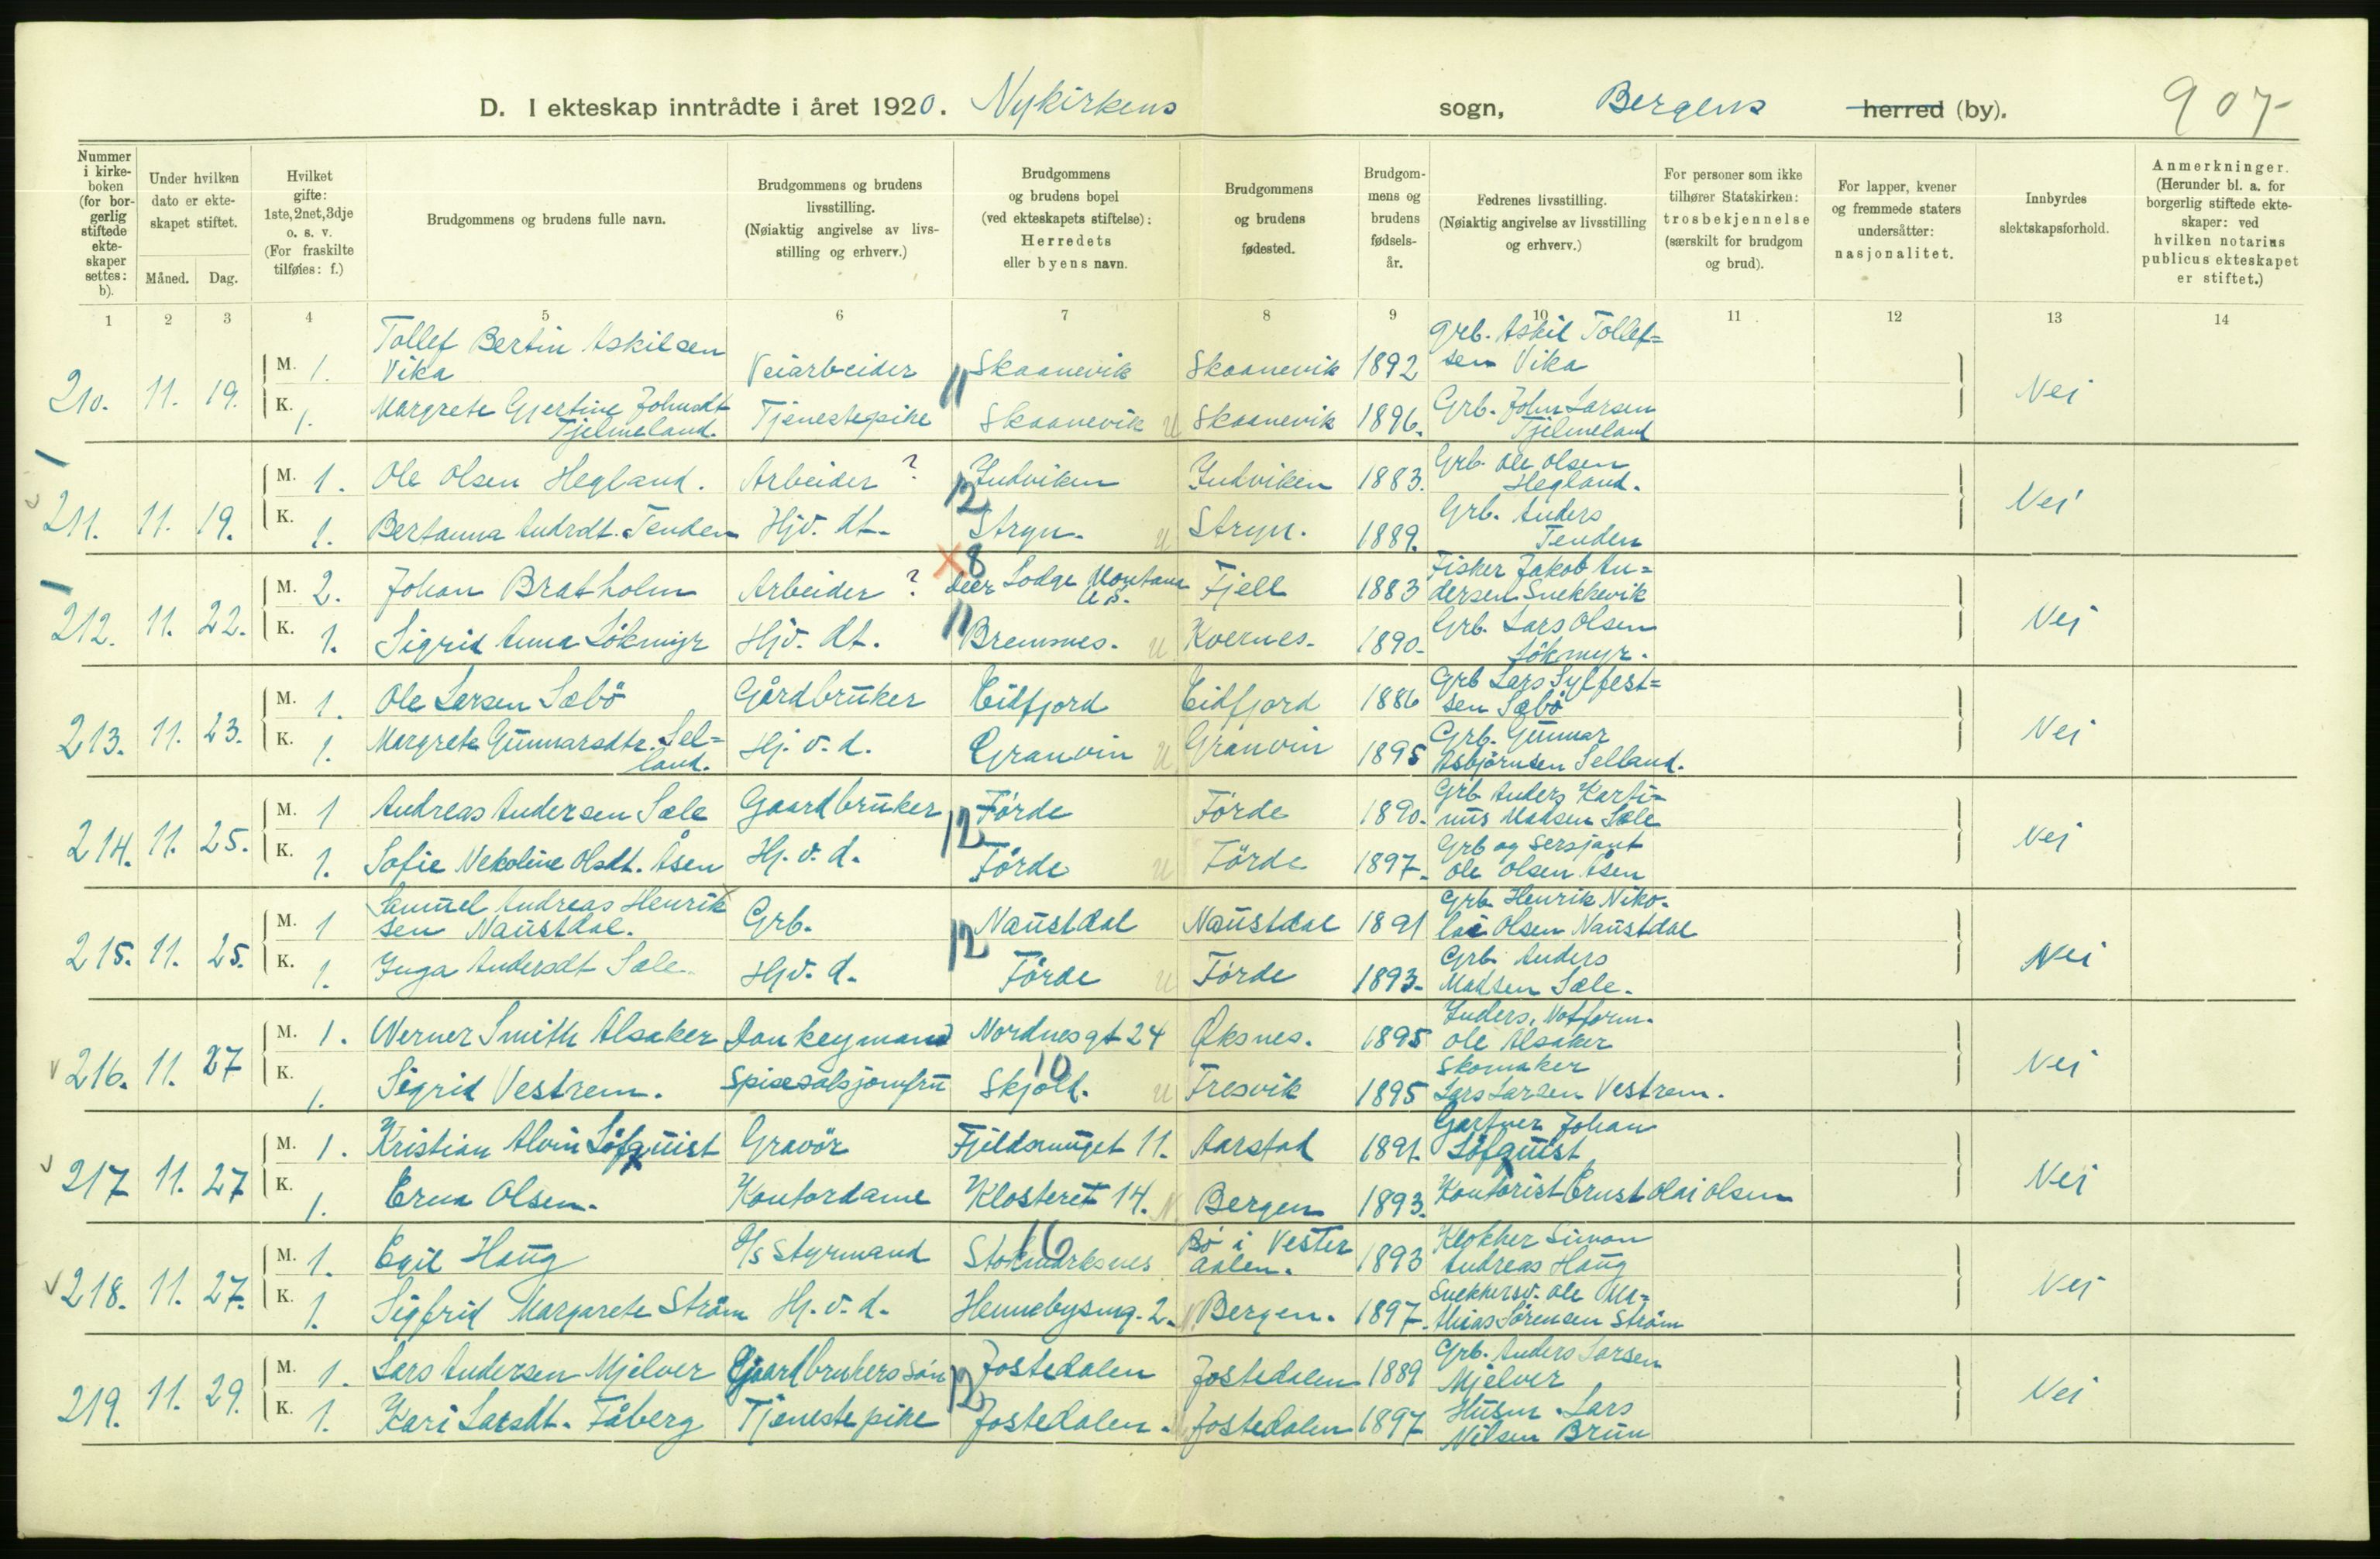 D. I ekteskap inntrådte i året 1920. Nykirkens sogn, Bergens herred (by). 907-
Nummer i kirkeboken (for borgerlig stiftede ekteskaper settes: b).
Under hvilken dato er ekteskapet stiftet.
Måned. Dag.
Hvilket gifte: 1ste, 2net, 3dje o. s. v. (For fraskilte tilføies: f.)
Brudgommens og brudens fulle navn.
Brudgommens og brudens livsstilling. (Nøiaktig angivelse av livsstilling og erhverv.)
Brudgommens og brudens bopel (ved ekteskapets stiftelse): Herredets eller byens navn.
Brudgommens og brudens fødested.
Brudgommens og brudens fødselsår.
Fedrenes livsstilling. (Nøiaktig angivelse av livsstilling og erhverv.)
For personer som ikke tilhører Statskirken: trosbekjennelse (særskilt for brudgom og brud).
For lapper, kvener og fremmede staters undersåtter: nasjonalitet.
Innbyrdes slektskapsforhold.
Anmerkninger. (Herunder bl. a. for borgerlig stiftede ekteskaper: ved hvilken notarius publicus ekteskapet er stiftet.)
1 2 3 4 5 6 7 8 9 10 11 12 13 14
210. 11. 19. M. 1. Tollef Bertin Askilsen Vika Veiarbeider 11 Skaanevik Skaanevik 1892 Grb. Askil Tollef= sen Vika Nei
K. 1. Margrete Gjertine Johnsdt Tjelmeland. Tjenestepike Skaanevik u Skaanevik 1896. Grb. John Larsen Tjelmeland
211. 11. 19. M. 1. Ole Olsen Hegland. Arbeider ? 12 Indviken Indviken 1883. Grb. Ole Olsen Hegland. Nei
K. 1. Bertanna Andrdt. Tenden Hjv. dt. Stryn. u Stryn. 1889. Grb. Anders Tenden
212. 11. 22. M. 2. Johan Bratholm Arbeider ? X 8 Deer Lodge Montana U.S. Fjell 1883 Fisker Jakob An= dersen Snekkevik Nei
K. 1. Sigrid Anna Lökmyr Hjv. dt. 11 Bremsnes. u Kvernes. 1890. Grb. Lars Olsen Lökmyr.
213. 11. 23. M. 1. Ole Larsen Sæbö Gårdbruker Eidfjord Eidfjord 1886 Grb Lars Sylfest= sen Sæbö Nei
K. 1. Margrete Gunnarsdtr. Sel= land. Hj. v. d. Granvin u Granvin 1895 Grb. Gunnar Asbjörnsen Selland.
214. 11. 25. M. 1 Andreas Andersen Sæle Gaardbruker 12 Förde Förde 1890. Grb Anders Karti= nus Madsen Sæle Nei
K. 1. Sofie Nekoline Olsdt. Åsen Hj. v. d. Förde u Förde 1897. Grb og Sersjant Ole Olsen Åsen
215. 11. 25. M. 1 Samuel Andreas Henrik sen Naustdal. Grb. 12 Naustdal Naustdal 1891 Grb. Henrik Niko. lai Olsen Naustdal Nei
K. 1. Inga Andersdt Sæle. Hjv. d. Förde u Förde 1893. Grb. Anders Madsen Sæle.
216. 11. 27 M. 1. Werner Smith Alsaker Donkeymand Nordnesgt 24 Øksnes. 1895 Ole Alsaker Nei
K. 1. Sigrid Vestrem. Spisesalsjomfru 10 Skjold. u Fresvik 1895 Skomaker Lars Larsen Vestrem.
217 11. 27 M. 1. Kristian Alvin Löfquist Gravör Fjeldsmuget 11. Aarstad 1891. Gartner Johan Löfquist Nei
K. 1. Erna Olsen. Kontordame Klosteret 14. N Bergen 1893. Kontorist Ernst Olai Olsen
218. 11. 27. M. 1. Egil Haug D/s Styrmand 16 Stokmarksnes Bö i Vester aalen. 1893 Klokker Simon Andreas Haug Nei
K. 1. Sigfrid Margarete Ström Hj. v. d. Hennebysmg. 2. N. Bergen. 1897. Snekkersv. Ole Ma= thias Sörensen Ström
219. 11. 29. M. 1. Lars Andersen Mjelver Gjaardbrukers sön 12 Jostedalen Jostedalen 1889 Grb. Anders Larsen Mjelver Nei
K. 1. Kari Larsdt. Fåberg Tjenestepike Jostedalen. Jostedalen 1897 Husm. Lars Nilsen Brun